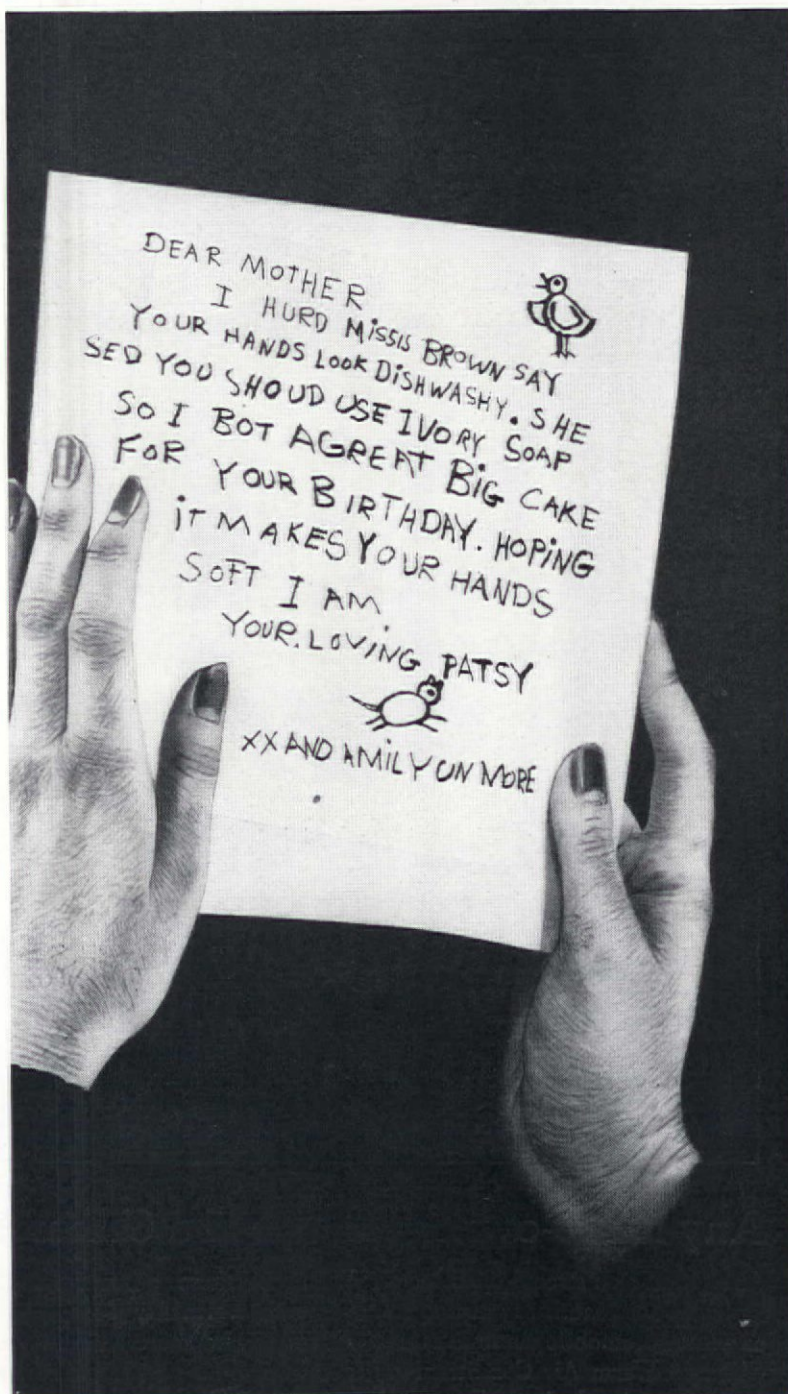 DEAR MOTHER
I HURD MISSIS BROWN SAY
YOUR HANDS LOOK DISHWASHY. SHE
SED YOU SHOUD USE IVORY SOAP
SO I BOT A GREAT BIG CAKE
FOR YOUR BIRTHDAY. HOPING
IT MAKES YOUR HANDS
SOFT I AM
YOUR. LOVING PATSY
XX AND A MILYUN MORE